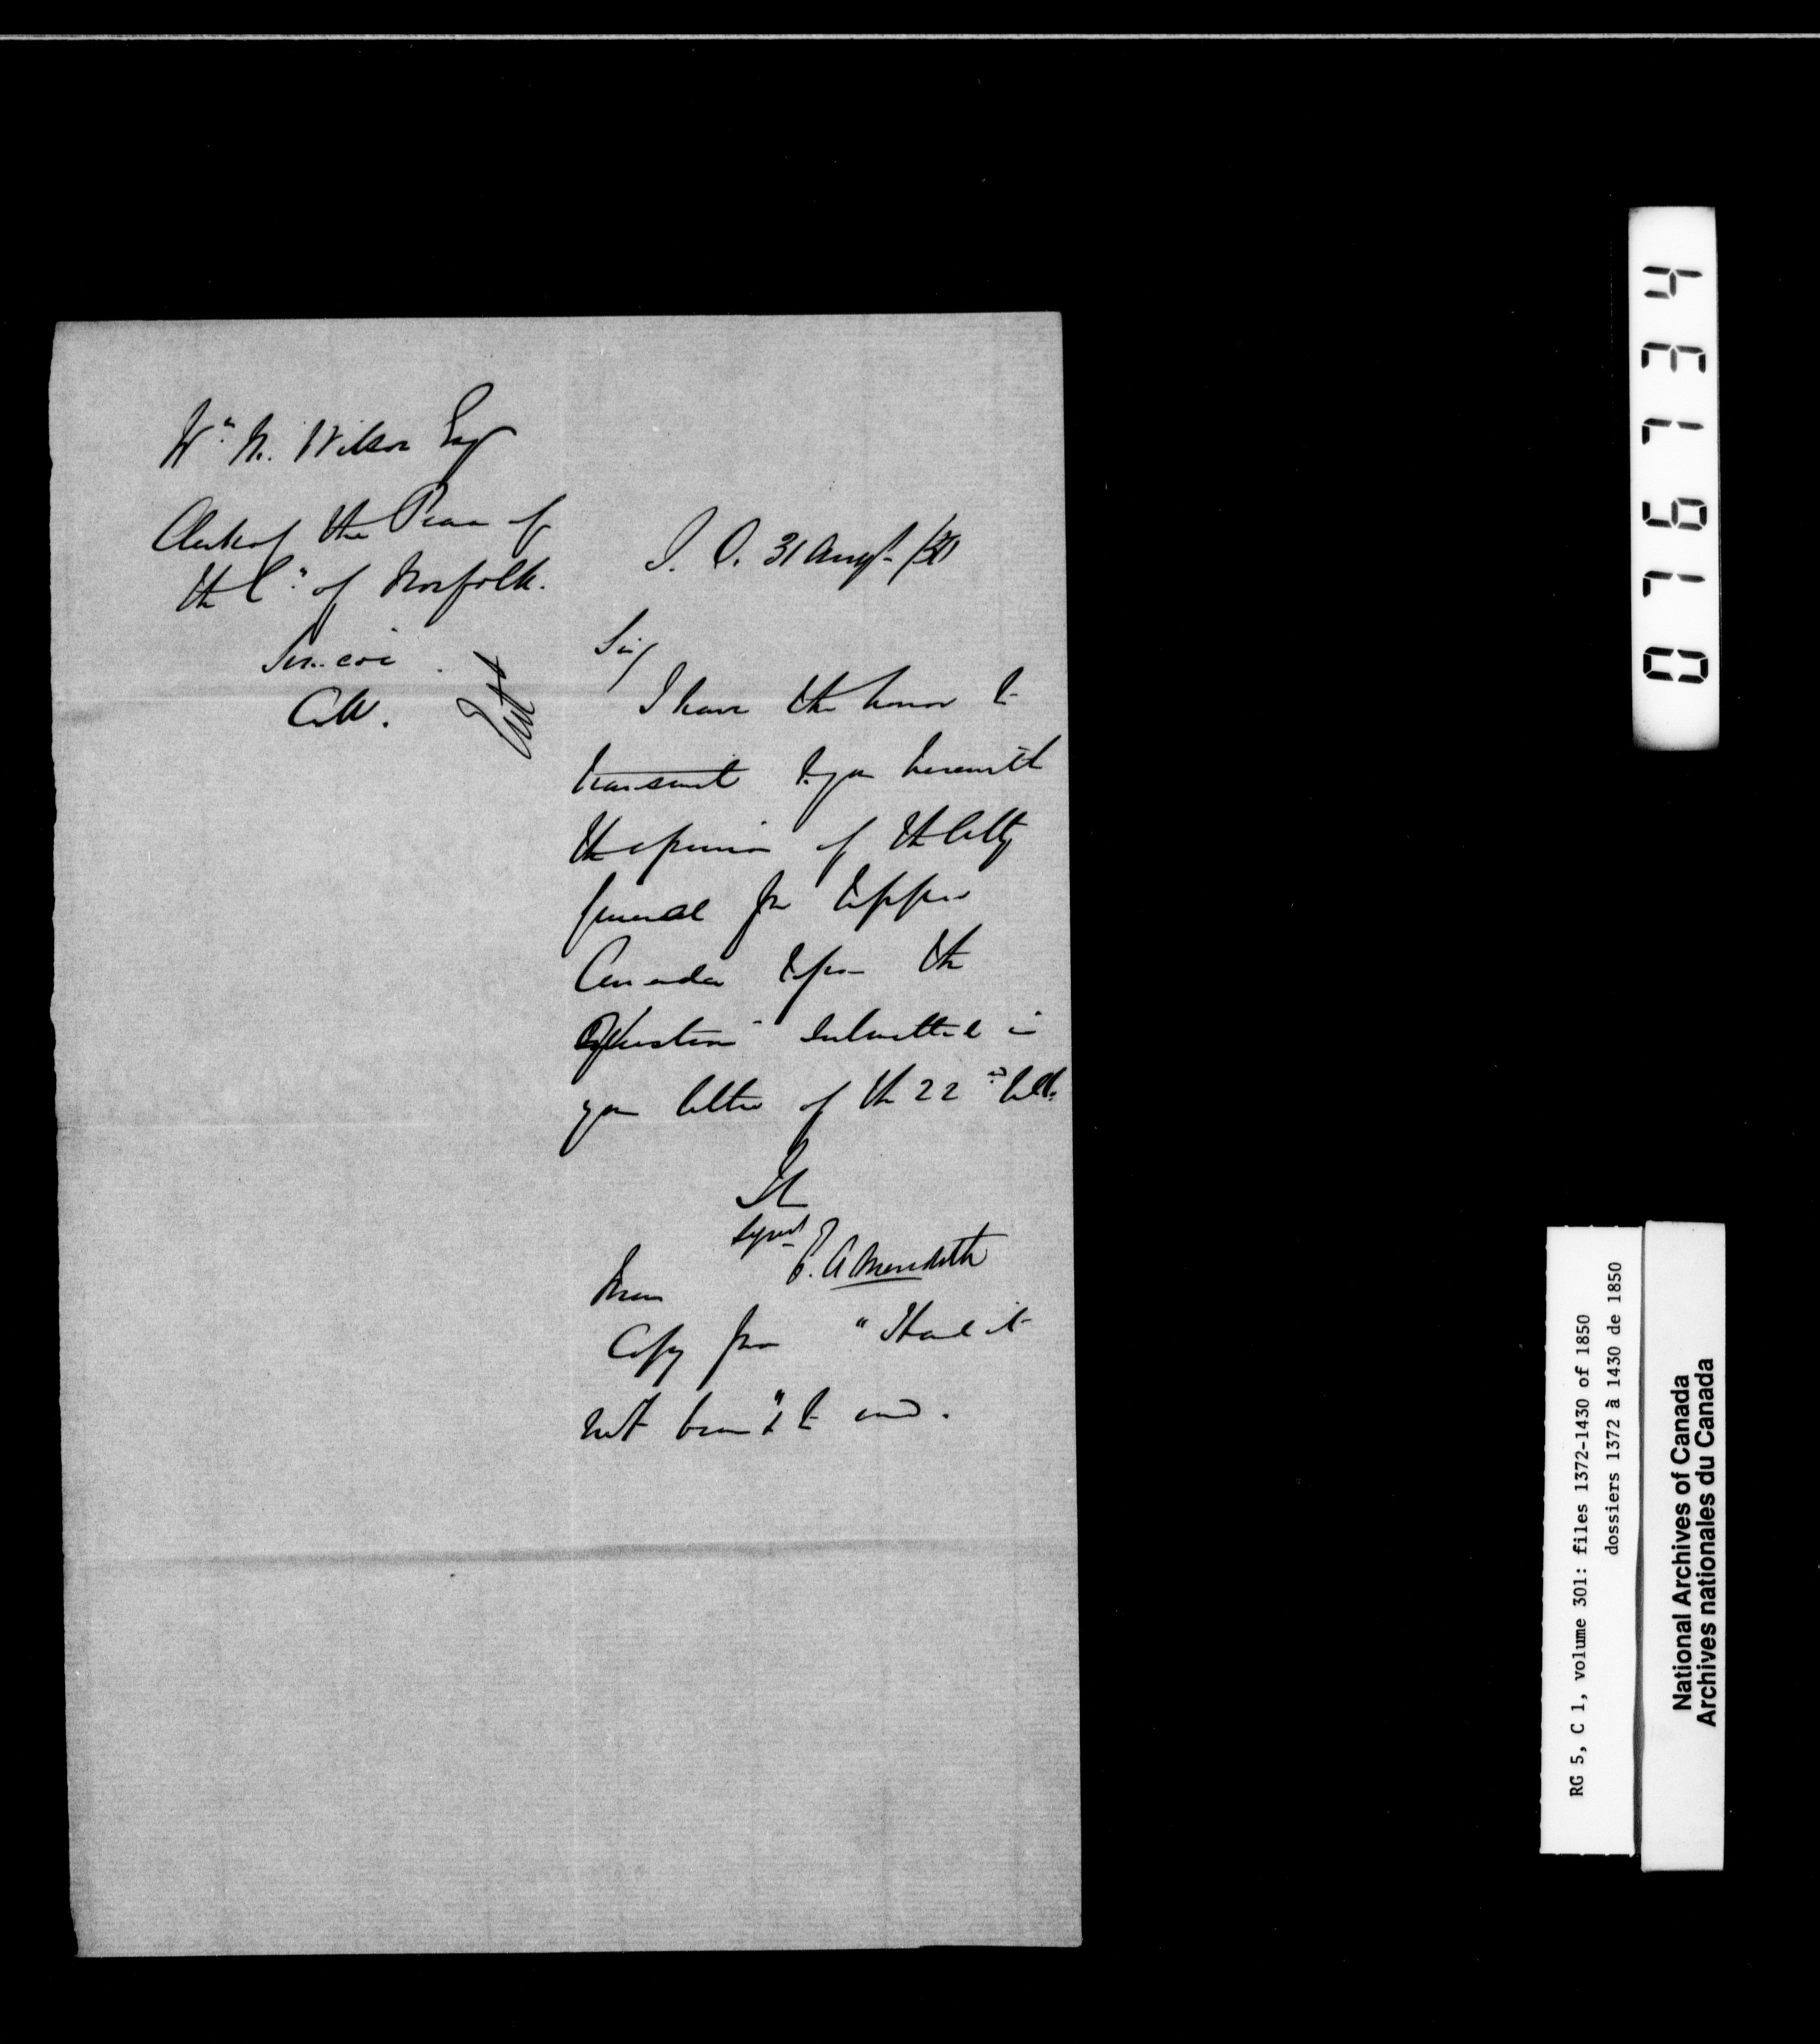 Wm. M. Wilson Esqr
Clerk of the Peace of
the Co. of Norfolk.
Simcoe
C.W.
S. O. 31 Augt. /50
Sir,
I have the honor to
transmit to you herewith
the opinion of the Atty
General for Upper
Canada upon the
Question submitted in
your letter of the 22nd
signed E. A Meredith
Mem
Copy from "I had it
not been" to end.
076734
RG 5, C 1, volume 301: files 1372-1430 of 1850
dossiers 1372 à 1430 de 1850
National Archives of Canada
Archives nationales du Canada